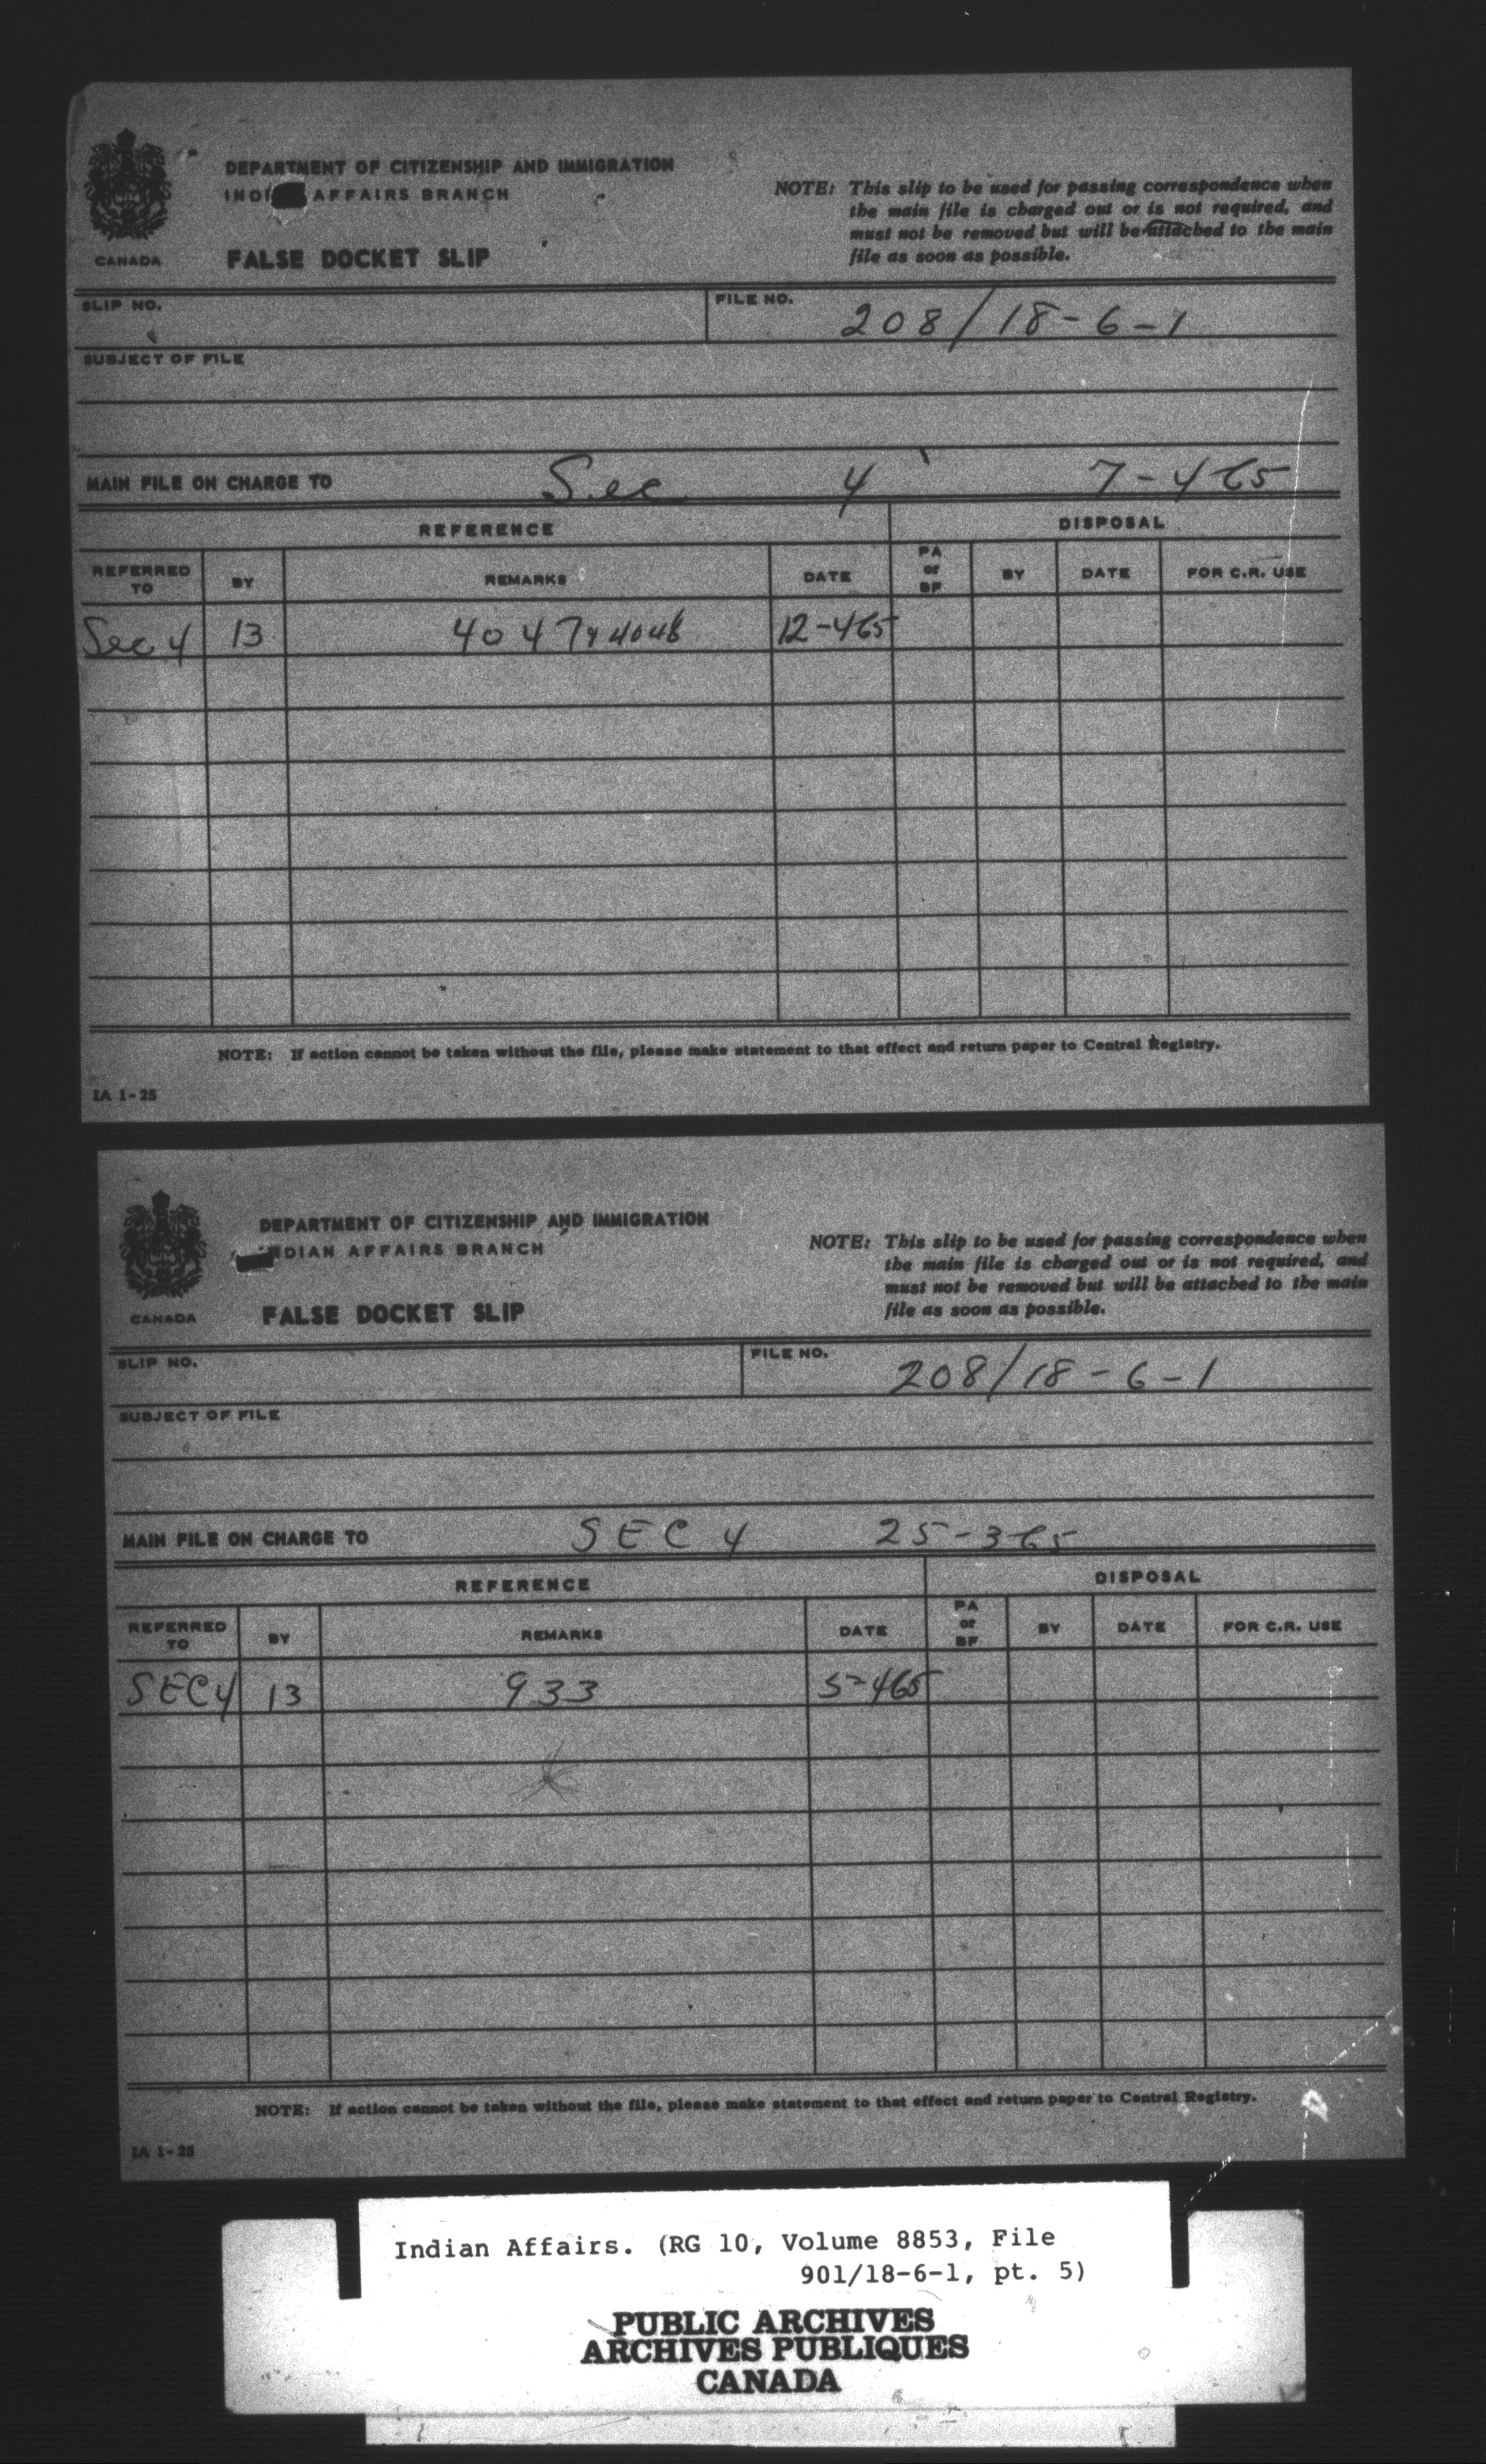 DEPARTMENT OF CITIZENSHIP AND IMMIGRATION
INDI AFFAIRS BRANCH
CANADA
FALSE DOCKET SLIP
NOTE: This slip to be used for passing correspondence when
the main file is charged out or is not required, and
must not be removed but will be attached to the main
file as soon as possible.
SLIP NO.
FILE NO. 208/18-6-1
SUBJECT OF FILE
MAIN FILE ON CHARGE TO Sec 4 7-4 65
REFERENCE DISPOSAL
REFERRED TO BY REMARKS DATE PA or BF BY DATE FOR C.R. USE
Sec 4 13 4047 & 4048 12-4 65
NOTE: If action cannot be taken without the file, please make statement to that effect and return paper to Central Registry.
IA 1-25
DEPARTMENT OF CITIZENSHIP AND IMMIGRATION
INDIAN AFFAIRS BRANCH
CANADA
FALSE DOCKET SLIP
NOTE: This slip to be used for passing correspondence when
the main file is charged out or is not required, and
must not be removed but will be attached to the main
file as soon as possible.
SLIP NO.
FILE NO. 208/18-6-1
SUBJECT OF FILE
MAIN FILE ON CHARGE TO SEC 4 25-3-65
REFERENCE DISPOSAL
REFERRED TO BY REMARKS DATE PA or BF BY DATE FOR C.R. USE
SEC 4 13 933 5-4 65
NOTE: If action cannot be taken without the file, please make statement to that effect and return paper to Central Registry.
IA 1-25
Indian Affairs. (RG 10, Volume 8853, File
901/18-6-1, pt. 5)
PUBLIC ARCHIVES
ARCHIVES PUBLIQUES
CANADA